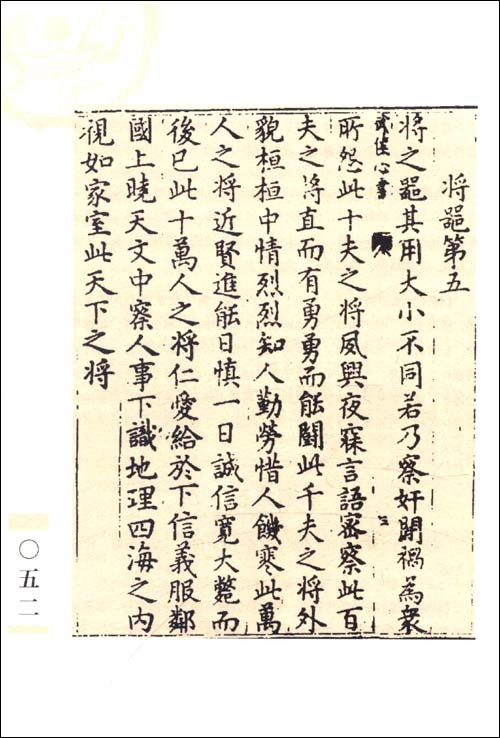 将噐第五
将之噐其用大小不同若乃察奸開禍為衆
武侯心書
所怨此十夫之将夙興夜寐言語密察此百
夫之将直而有勇勇而能鬪此千夫之将外
貌桓桓中情烈烈知人勤勞惜人饑寒此萬
人之将近賢進能日慎一日誠信寬大斃而
後已此十萬人之将仁愛給於下信義服鄰
國上曉天文中察人事下識地理四海之内
視如家室此天下之将
〇五二